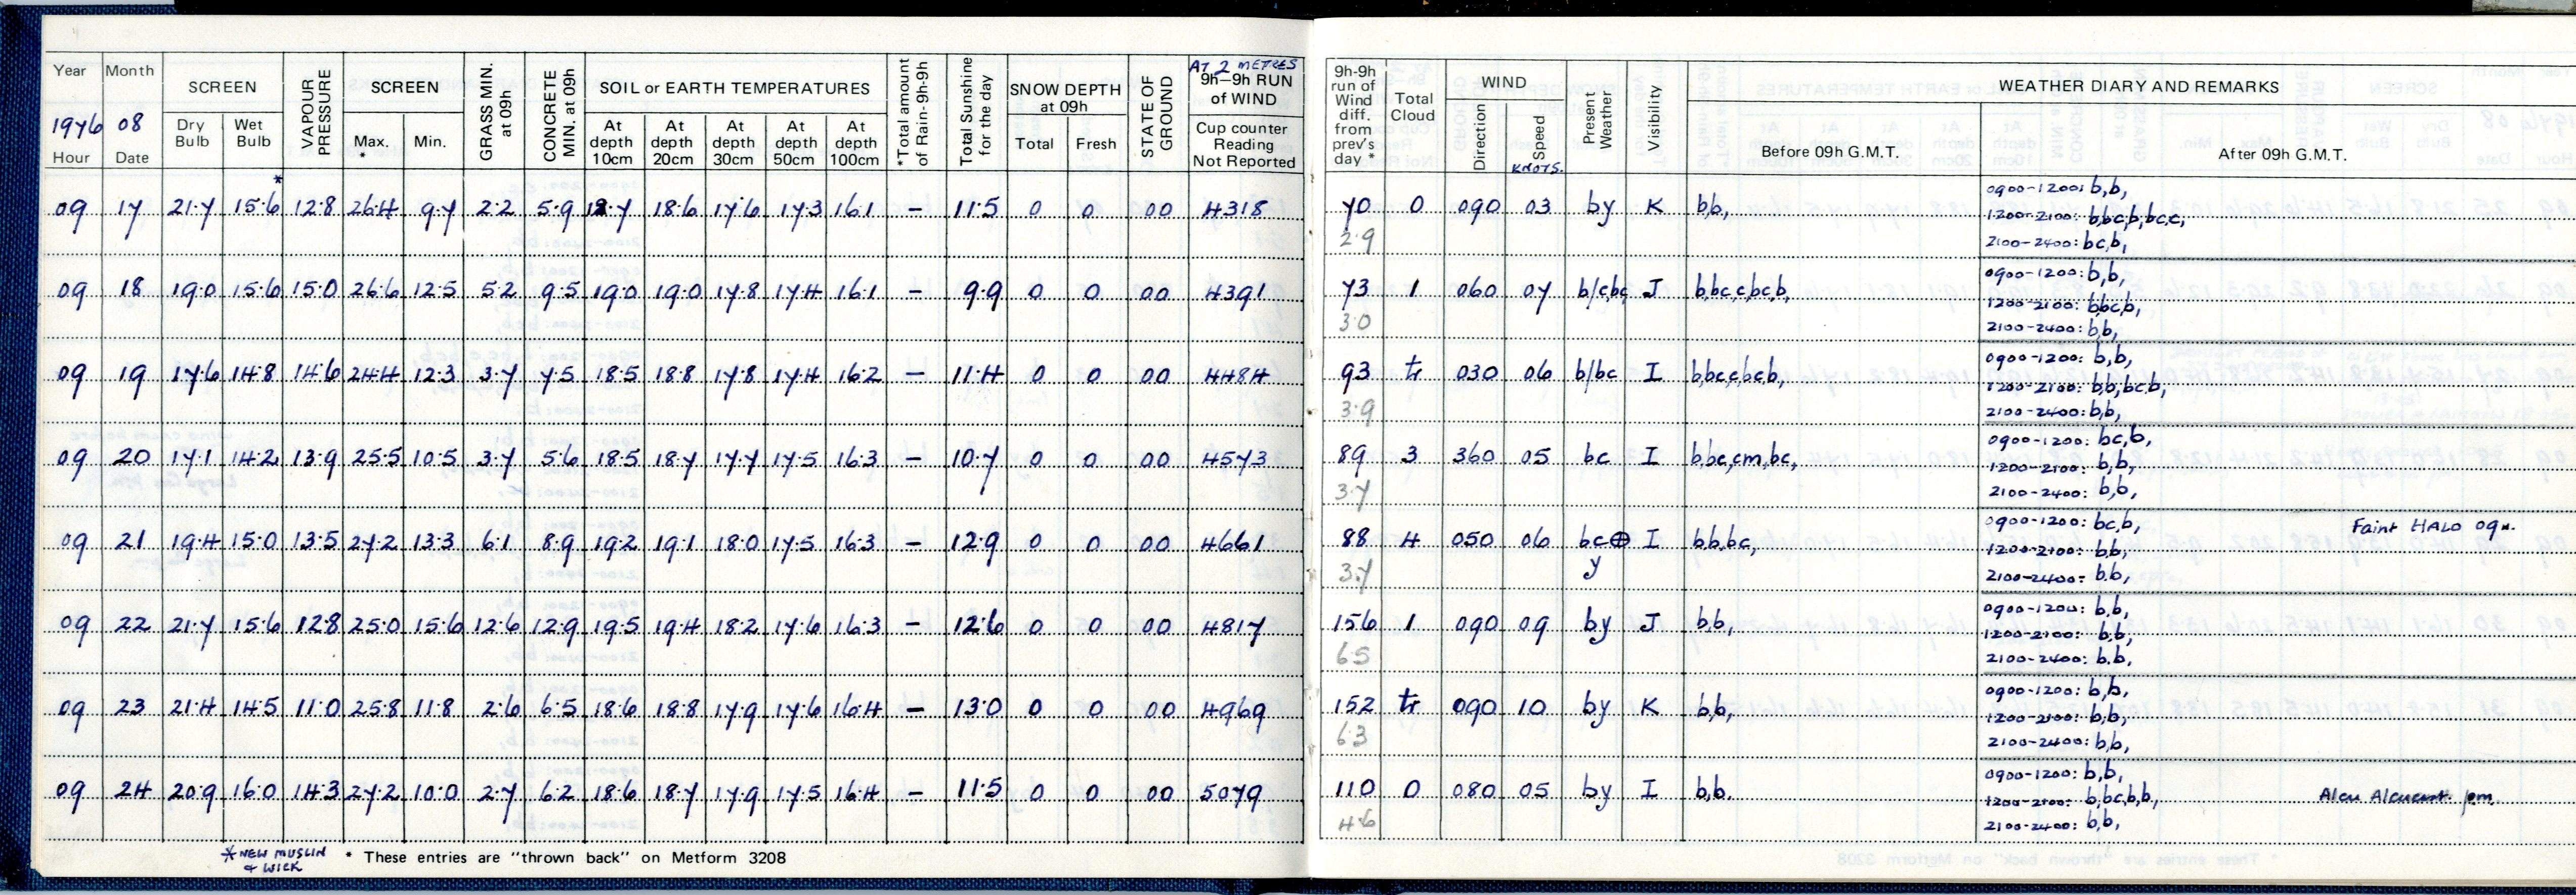 AT 2 METRES
Year Month SCREEN VAPOUR PRESSURE SCREEN GRASS MIN. at 09h CONCRETE MIN. at 09h SOIL or EARTH TEMPERATURES *Total amount of Rain-9h-9h Total Sunshine for the day SNOW DEPTH at 09h STATE OF GROUND 9h—9h RUN of WIND 9h-9h run of Wind diff. from prev's day * Total Cloud WIND Present Weather Visibility WEATHER DIARY AND REMARKS
1976 08 Dry Bulb Wet Bulb Max. * Min. At depth 10cm At depth 20cm At depth 30cm At depth 50cm At depth 100cm Total Fresh Cup counter Reading Not Reported Direction Speed KNOTS. Before 09h G.M.T. After 09h G.M.T.
Hour Date
*
09 17 21.7 15.6 12.8 26.4 9.7 2.2 5.9 18.7 18.6 17.6 17.3 16.1 – 11.5 0 0 00 4318 70 0 090 03 by K b,b, 0900-1200: b,b,
1200-2100: b,bc,b,bc,c,
2.9 2100-2400: bc,b,
09 18 19.0 15.6 15.0 26.6 12.5 5.2 9.5 19.0 19.0 17.8 17.4 16.1 – 9.9 0 0 00 4391 73 1 060 07 b/c,bc J b,bc,c,bc,b, 0900-1200: b,b,
1200-2100: b,bc,b,
3.0 2100-2400: b,b,
09 19 17.6 14.8 14.6 24.4 12.3 3.7 7.5 18.5 18.8 17.8 17.4 16.2 – 11.4 0 0 00 4484 93 tr 030 06 b/bc I b,bc,c,bc,b, 0900-1200: b,b,
1200-2100: b,b,bc,b,
3.9 2100-2400: b,b,
09 20 17.1 14.2 13.9 25.5 10.5 3.7 5.6 18.5 18.7 17.7 17.5 16.3 – 10.7 0 0 00 4573 89 3 360 05 bc I b,bc,cm,bc, 0900-1200: bc,b,
1200-2100: b,b,
3.7 2100-2400: b,b,
09 21 19.4 15.0 13.5 27.2 13.3 6.1 8.9 19.2 19.1 18.0 17.5 16.3 – 12.9 0 0 00 4661 88 4 050 06 bc⊕ y I b,b,bc, 0900-1200: bc,b, Faint HALO 09H.
1200-2100: b,b,
3.7 2100-2400: b,b,
09 22 21.7 15.6 12.8 25.0 15.6 12.6 12.9 19.5 19.4 18.2 17.6 16.3 – 12.6 0 0 00 4817 156 1 090 09 by J b,b, 0900-1200: b,b,
1200-2100: b,b,
6.5 2100-2400: b,b,
09 23 21.4 14.5 11.0 25.8 11.8 2.6 6.5 18.6 18.8 17.9 17.6 16.4 – 13.0 0 0 00 4969 152 tr 090 10 by K b,b, 0900-1200: b,b,
1200-2100: b,b,
6.3 2100-2400: b,b,
09 24 20.9 16.0 14.3 27.2 10.0 2.7 6.2 18.6 18.7 17.9 17.5 16.4 – 11.5 0 0 00 5079 110 0 080 05 by I b,b. 0900-1200: b,b,
1200-2100: b,bc,b,b, Alcu pm
4.6 2100-2400: b,b,
* NEW MUSLIN & WICK * These entries are "thrown back" on Metform 3208